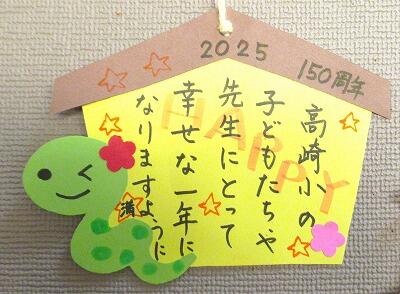 2025
150周年
HAPPY
高崎小の
子どもたちや
先生にとって
幸せな一年に
なりますように
満